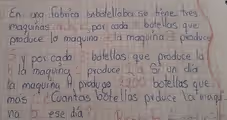 En una fabrica enbotelladora se tiene tres
maquinas a, b, c, por cada botellas que
produce la maquina produce
y por cada botellas que produce la
b la maquina produce Si un dia
la maquina A produjo botellas que
mas ¿Cuantas botellas produce la maqui
na ese dia?